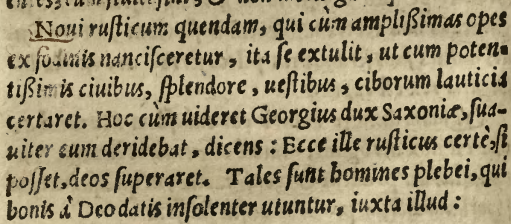 Noui ruſticum quendam, qui cùm ampliſsimas opes
ex fodinis nanciſceretur, ita ſe extulit, ut cum poten-
tißimis ciuibus, ſplendore, ueſtibus, ciborum lauticia
certaret. Hoc cùm uideret Georgius dux Saxoniæ, ſua-
uiter eum deridebat, dicens: Ecce ille ruſticus certè, ſi
poſſet, deos ſuperaret. Tales ſunt homines plebei, qui
bonis à Deo datis inſolenter utuntur, iuxta illud: